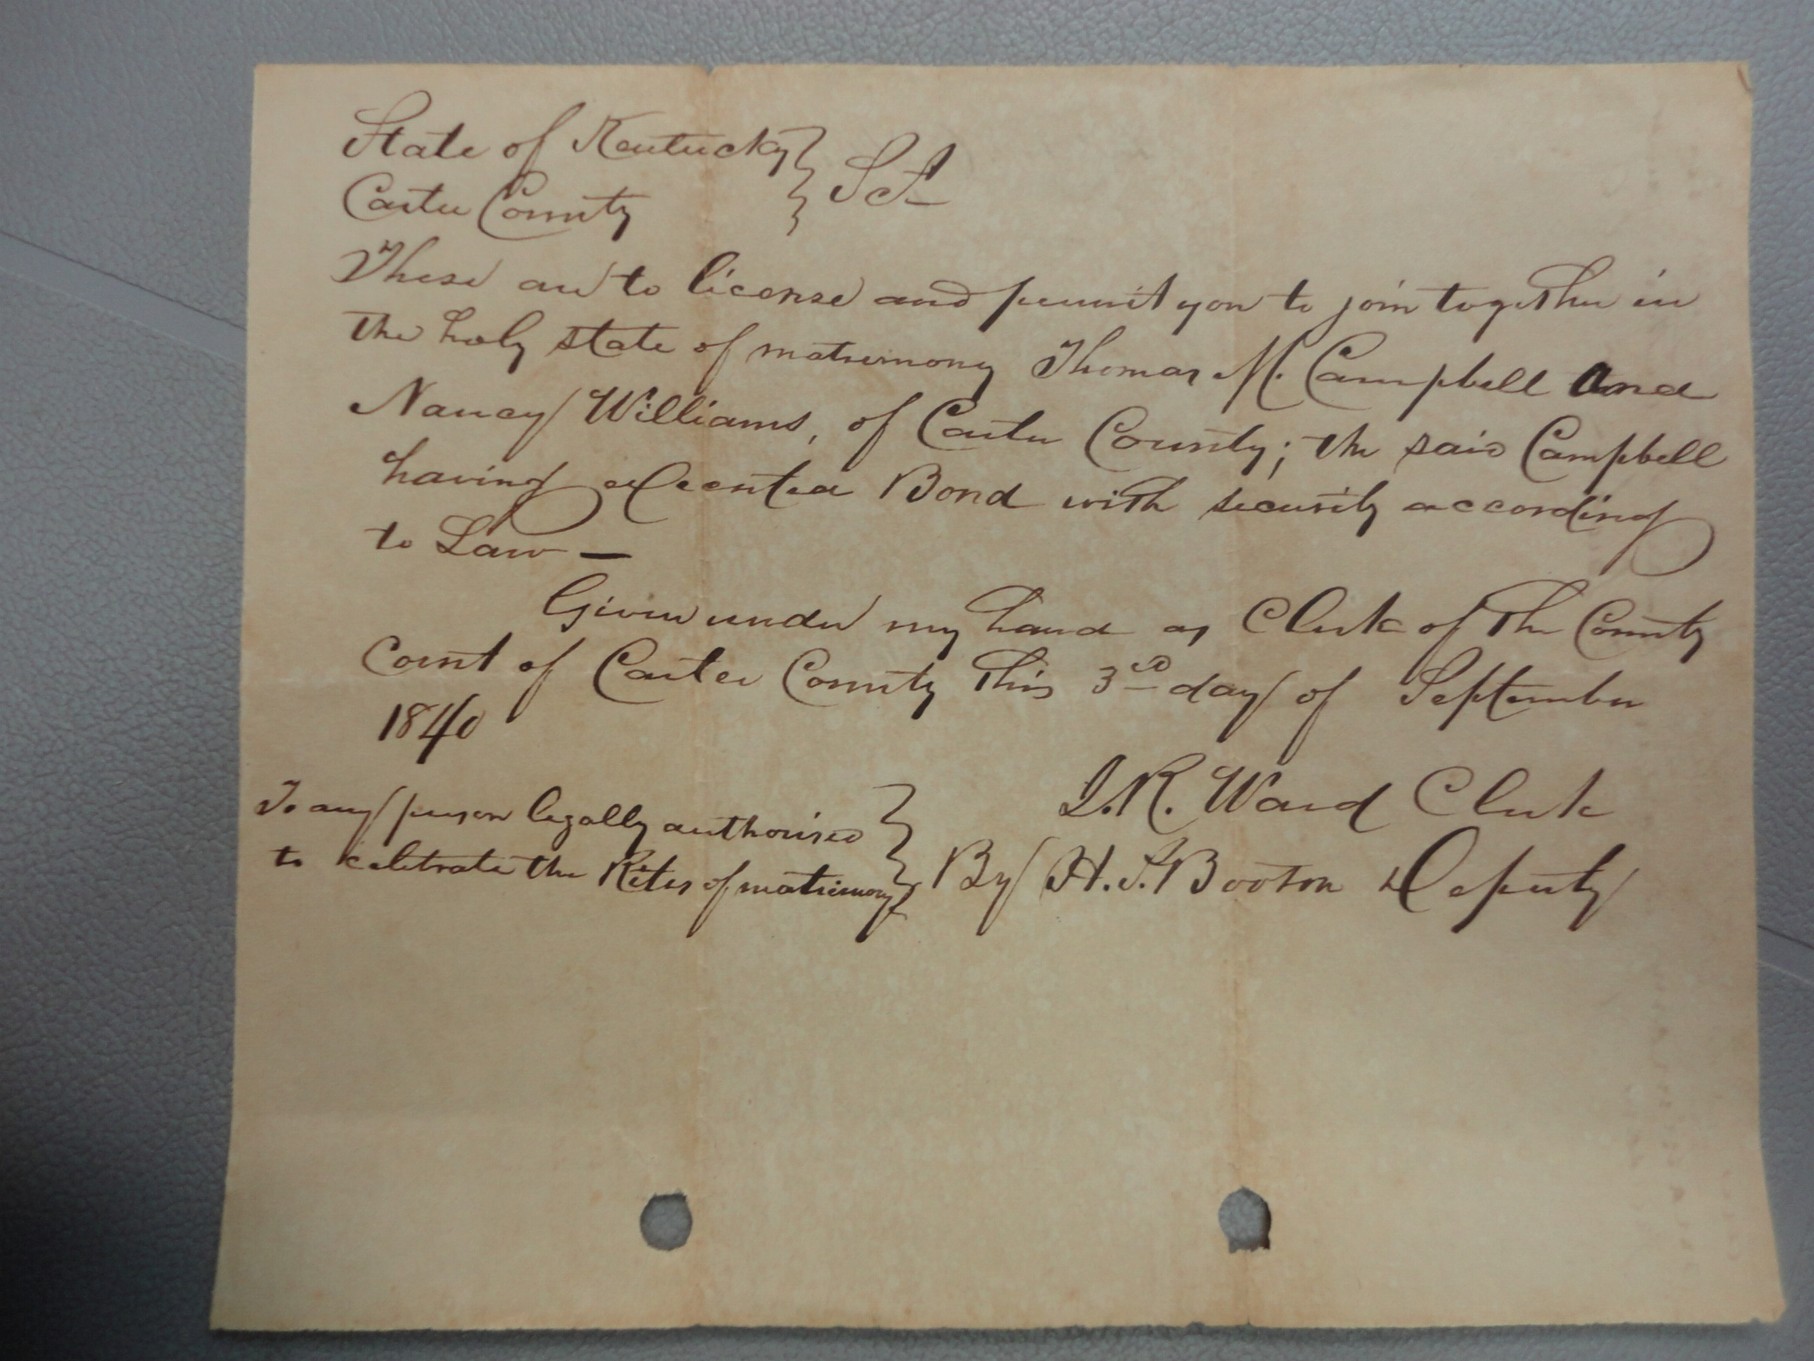 State of Kentucky } Sct
Carter County
These are to license and permit you to join together in
the holy state of matrimony Thomas M. Campbell and
Nancy Williams, of Carter County; the said Campbell
having executed Bond with security according
to Law —
Given under my hand as Clerk of the County
Court of Carter County this 3rd day of September
1840
J. R. Ward Clerk
To any person legally authorised
to celebrate the Rites of matrimony } By H. S. Booton Deputy